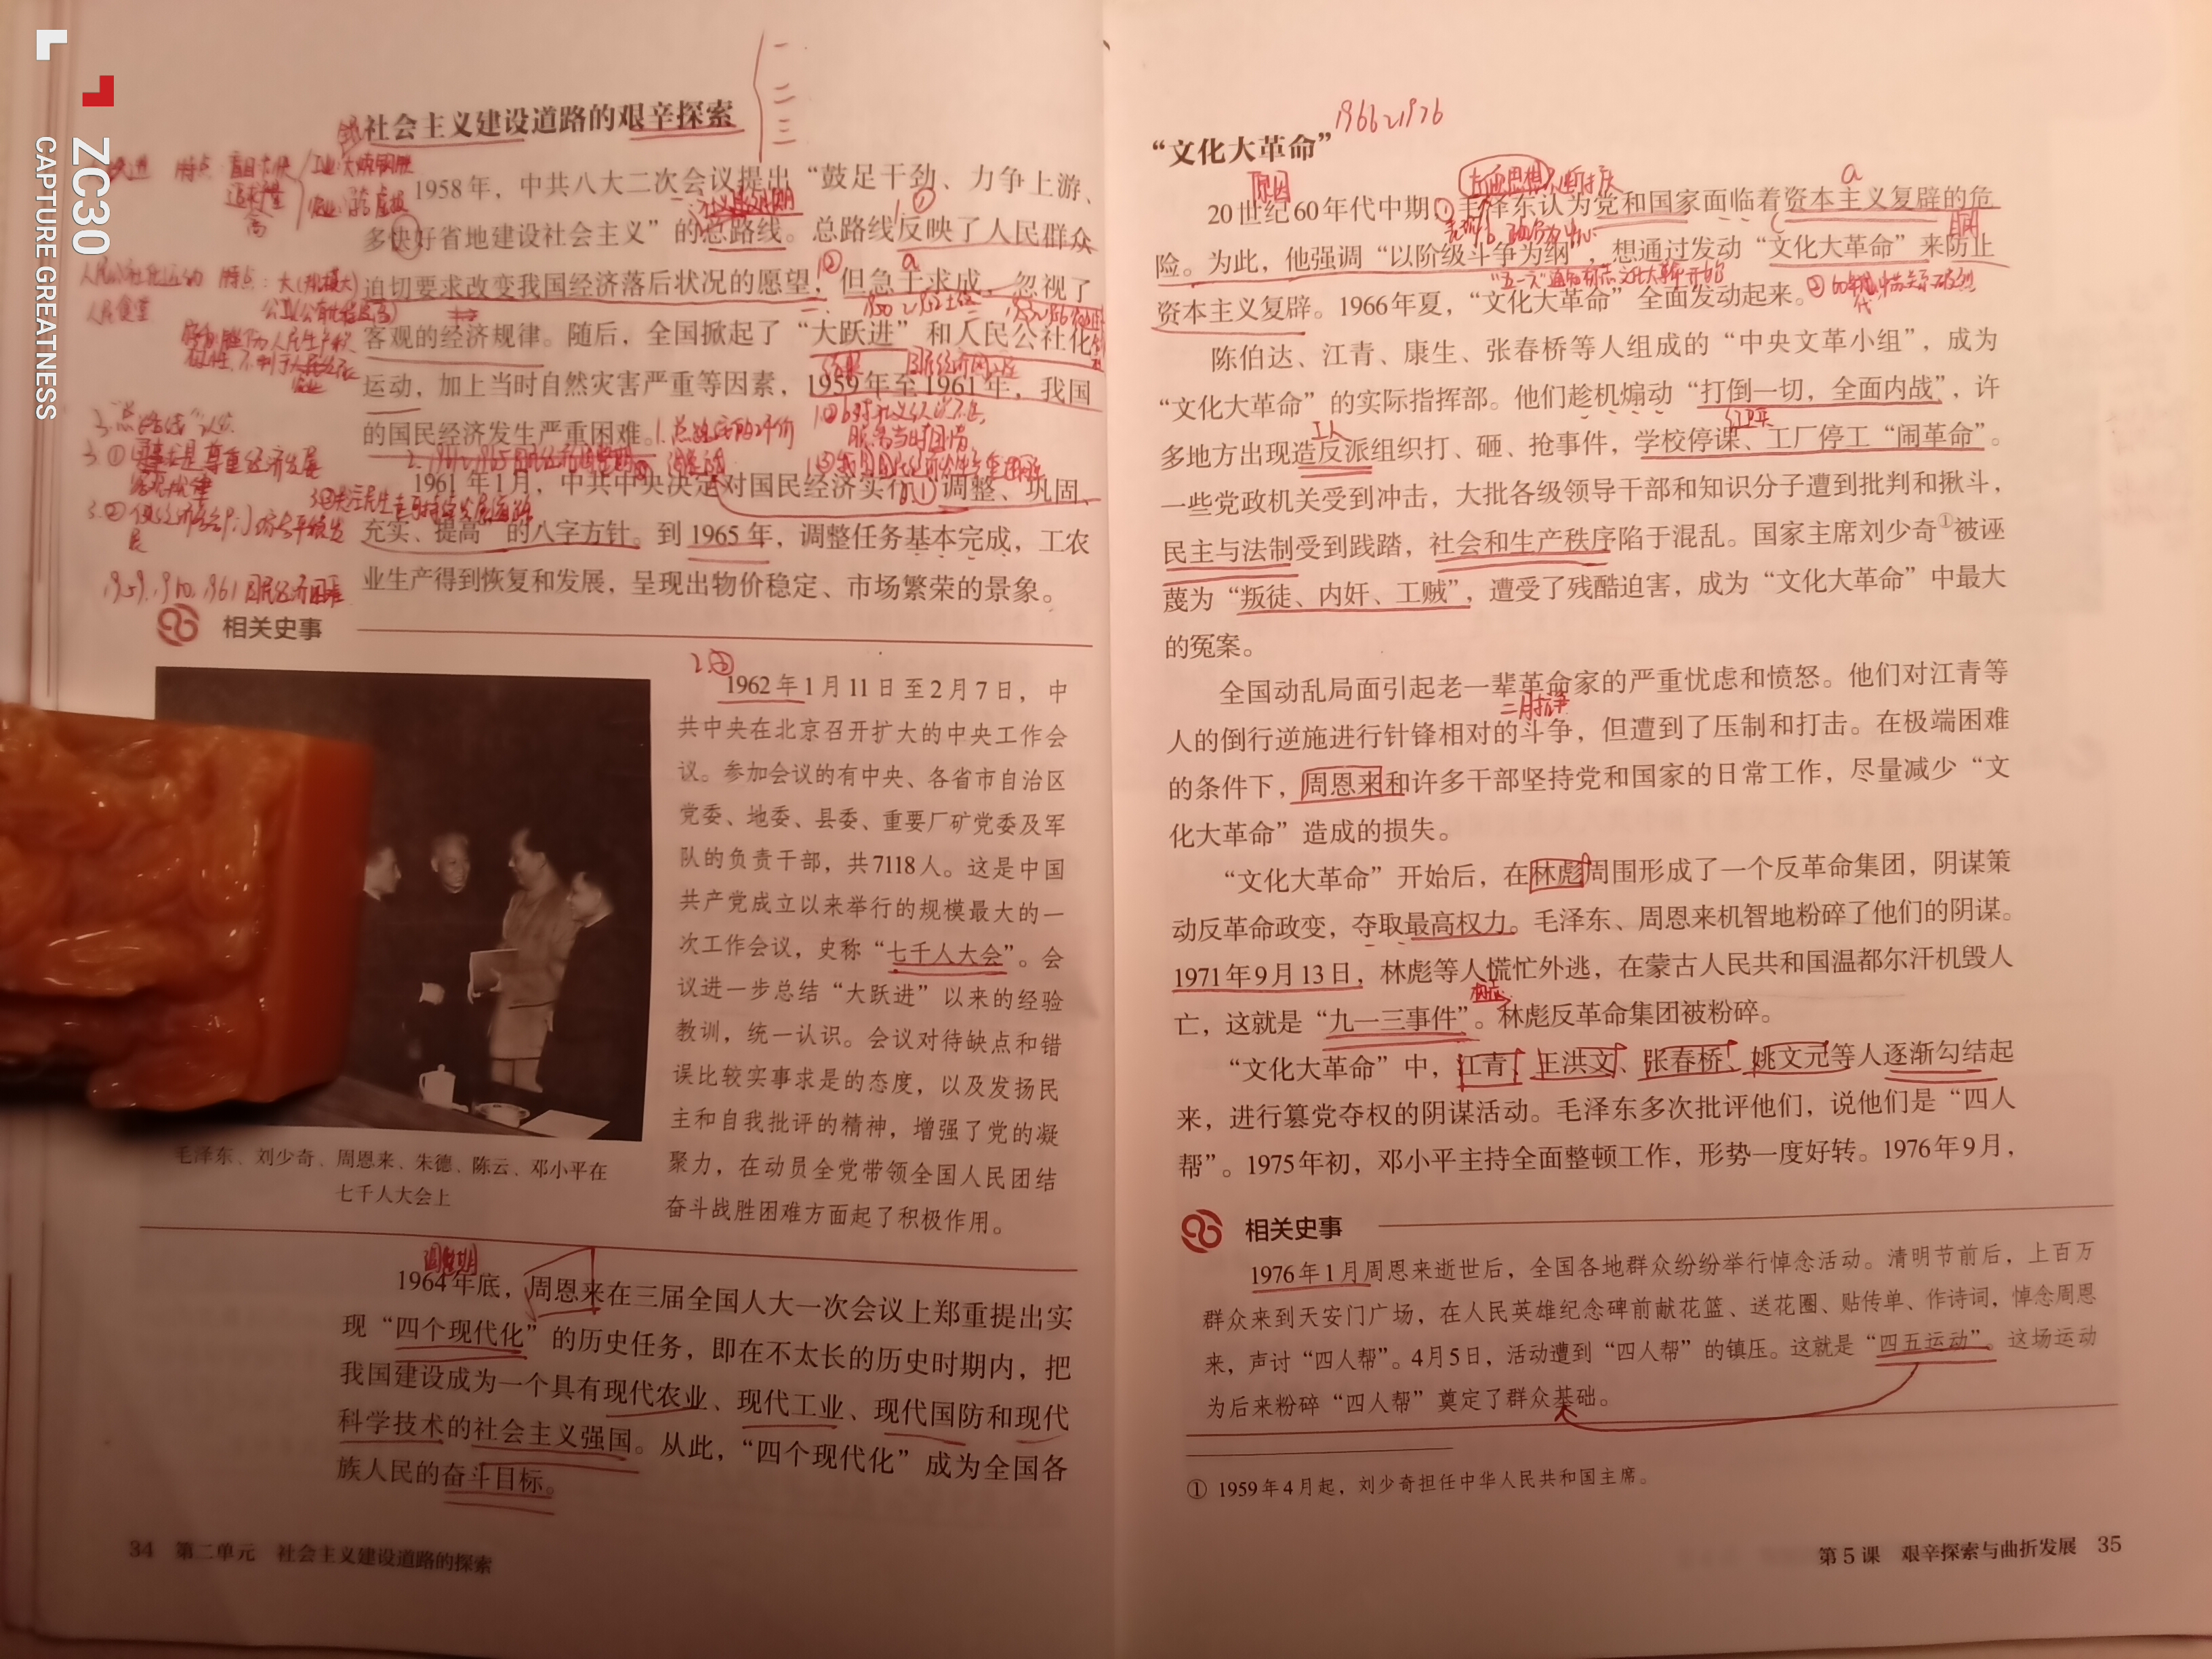 ZC30
CAPTURE GREATNESS
社会主义建设道路的艰辛探索
一
二
三
1958年，中共八大二次会议提出“鼓足干劲、力争上游、
多快好省地建设社会主义”的总路线。总路线反映了人民群众
迫切要求改变我国经济落后状况的愿望，但急于求成，忽视了
客观的经济规律。随后，全国掀起了“大跃进”和人民公社化
运动，加上当时自然灾害严重等因素，1959年至1961年，我国
的国民经济发生严重困难。
1961年1月，中共中央决定对国民经济实行“调整、巩固、
充实、提高”的八字方针。到1965年，调整任务基本完成，工农
业生产得到恢复和发展，呈现出物价稳定、市场繁荣的景象。
相关史事
1962年1月11日至2月7日，中
共中央在北京召开扩大的中央工作会
议。参加会议的有中央、各省市自治区
党委、地委、县委、重要厂矿党委及军
队的负责干部，共7118人。这是中国
共产党成立以来举行的规模最大的一
次工作会议，史称“七千人大会”。会
议进一步总结“大跃进”以来的经验
教训，统一认识。会议对待缺点和错
误比较实事求是的态度，以及发扬民
主和自我批评的精神，增强了党的凝
聚力，在动员全党带领全国人民团结
奋斗战胜困难方面起了积极作用。
毛泽东、刘少奇、周恩来、朱德、陈云、邓小平在
七千人大会上
1964年底，周恩来在三届全国人大一次会议上郑重提出实
现“四个现代化”的历史任务，即在不太长的历史时期内，把
我国建设成为一个具有现代农业、现代工业、现代国防和现代
科学技术的社会主义强国。从此，“四个现代化”成为全国各
族人民的奋斗目标。
34 第二单元 社会主义建设道路的探索
“文化大革命”
1966~1976
原因
20世纪60年代中期，毛泽东认为党和国家面临着资本主义复辟的危
险。为此，他强调“以阶级斗争为纲”，想通过发动“文化大革命”来防止
资本主义复辟。1966年夏，“文化大革命”全面发动起来。
陈伯达、江青、康生、张春桥等人组成的“中央文革小组”，成为
“文化大革命”的实际指挥部。他们趁机煽动“打倒一切，全面内战”，许
工人
红卫兵
多地方出现造反派组织打、砸、抢事件，学校停课、工厂停工“闹革命”。
一些党政机关受到冲击，大批各级领导干部和知识分子遭到批判和揪斗，
民主与法制受到践踏，社会和生产秩序陷于混乱。国家主席刘少奇①被诬
蔑为“叛徒、内奸、工贼”，遭受了残酷迫害，成为“文化大革命”中最大
的冤案。
全国动乱局面引起老一辈革命家的严重忧虑和愤怒。他们对江青等
二月抗争
人的倒行逆施进行针锋相对的斗争，但遭到了压制和打击。在极端困难
的条件下，周恩来和许多干部坚持党和国家的日常工作，尽量减少“文
化大革命”造成的损失。
“文化大革命”开始后，在林彪周围形成了一个反革命集团，阴谋策
动反革命政变，夺取最高权力。毛泽东、周恩来机智地粉碎了他们的阴谋。
1971年9月13日，林彪等人慌忙外逃，在蒙古人民共和国温都尔汗机毁人
亡，这就是“九一三事件”。林彪反革命集团被粉碎。
“文化大革命”中，江青、王洪文、张春桥、姚文元等人逐渐勾结起
来，进行篡党夺权的阴谋活动。毛泽东多次批评他们，说他们是“四人
帮”。1975年初，邓小平主持全面整顿工作，形势一度好转。1976年9月，
相关史事
1976年1月周恩来逝世后，全国各地群众纷纷举行悼念活动。清明节前后，上百万
群众来到天安门广场，在人民英雄纪念碑前献花篮、送花圈、贴传单、作诗词，悼念周恩
来，声讨“四人帮”。4月5日，活动遭到“四人帮”的镇压。这就是“四五运动”。这场运动
为后来粉碎“四人帮”奠定了群众基础。
① 1959年4月起，刘少奇担任中华人民共和国主席。
第5课 艰辛探索与曲折发展 35